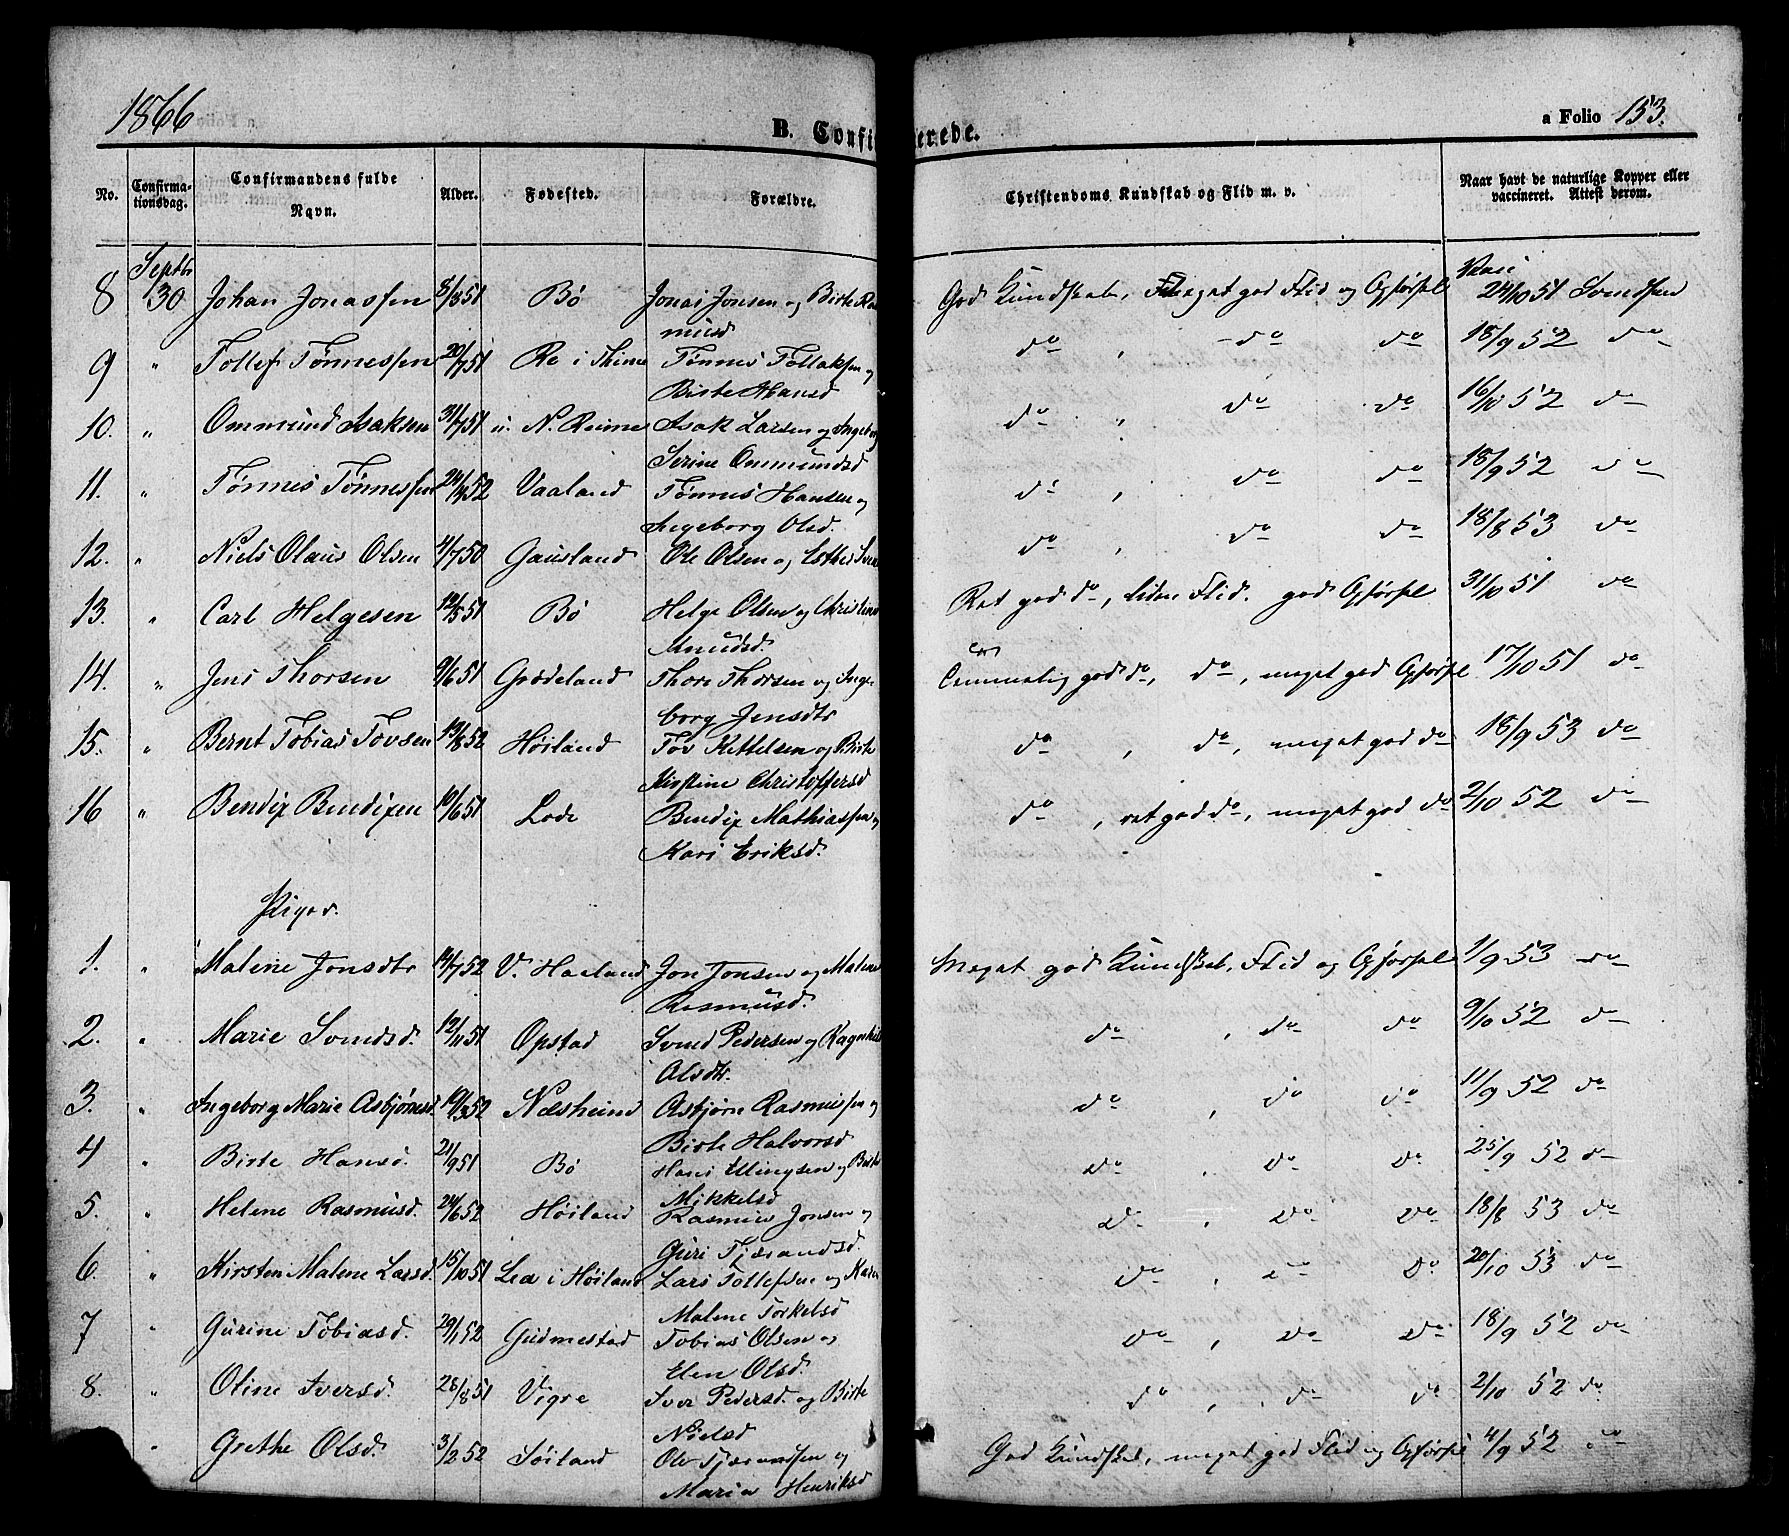 1866
B. Confirmerede.
a Folio 153.
No. Confirmationsdag. Confirmandens fulde Navn. Alder. Fødested. Forældre. Christendoms Kundskab og Flid m. v. Naar havt de naturlige Kopper eller vaccineret. Attest derom.
Septbr Vacc
8 30 Johan Jonassen 8/8 51 Bø Jonas Jonsen og Birte Ras God Kundskab, meget god Flid og Opførsel 24/10 51 Svendsen
musd
9 " Tollef Tønnessen 20/7 51 Re i Thime Tønnes Tollaksen og do , do do 18/9 52 do
Birte Hansd
10. " Ommund Isaksen 31/7 51 N. Reime Isak Larsen og Ingeborg do " do do 16/10 52 do
Serine Ommundsd
11. " Tønnes Tønnessen 24/4 52 Vaaland Tønnes Hansen og do , do do 18/9 52 do
Ingeborg Olsd.
12. " Niels Olaus Olsen 4/7 50 Gausland Ole Olsen og Esther do , do do 18/8 53 do
13. " Carl Helgesen 12/5 51 Bø Helge Olsen og Christine Ret god do, liden Flid. god Opførsel 31/10 51 do
Knudsd.
14. " Jens Thorsen 9/6 51 Grødeland Thore Thorsen og Inge god do, do, meget god Opførsel 17/10 51 do
borg Jensdtr
15. " Bernt Tobias Tovsen 19/8 52 Høiland Tov Kittelsen og Birte do , do, meget god do 18/9 53 do
Kirstine Christoffersd
16 " Bendix Bendixen 10/6 51 Lode Bendix Mathiassen og do , ret god do, meget god do 2/10 52 do
Kari Eriksd.
Piger.
1. " Malene Jonsdtr 14/7 52 V. Haaland Jon Jonsen og Malene Meget god Kundskab, Flid og Opførsel 1/9 53 do
Rasmusd.
2. " Marie Svendsd. 12/11 51 Opstad Svend Pedersen og do , do do 9/10 52 do
Olsdtr.
3. " Ingeborg Marie Asbjørnsd. 19/3 52 Næsheim Asbjørn Rasmussen og do , do do 11/9 52 do
Birte Halvorsd
4 " Birte Hansd. 21/9 51 Bø Hans Ellingsen og Birte do , do do 25/9 52 do
Mikkelsd
5. " Helene Rasmusd. 24/6 52 Høiland Rasmus Jonsen og do , do do 18/8 53 do
Guri Tjærandsd.
6. " Kirsten Malene Larsd. 15/10 51 Lea i Høiland Lars Tollefsen og Karen do , do do 20/10 53 do
Malene Torkelsd
7 " Gurine Tobiasd. 29/1 52 Gudmestad Tobias Olsen og do , do do 18/9 52 do
Elen Olsd.
8. " Oline Iversd. 28/8 51 Vigre Iver Pedersd. og Birte do , do do 2/10 52 do
Nielsd
" Grethe Olsd. 3/2 52 Søiland Ole Tjærandsen og God Kundskab, meget god Flid og Opførsel 4/9 52 do
Maria Henriksd